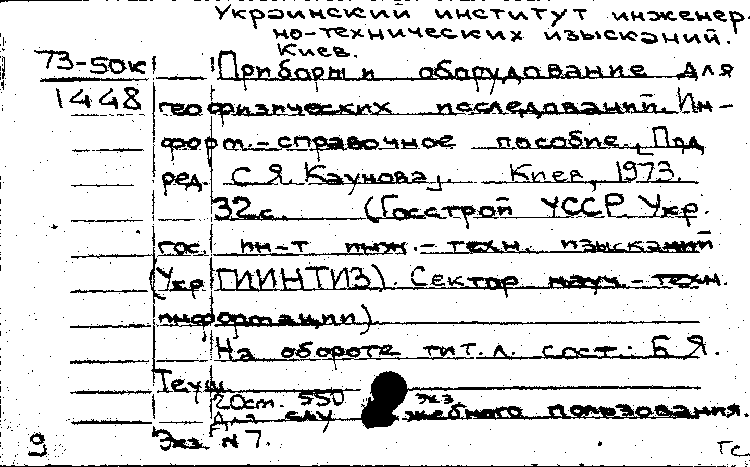 Украинский институт инженер-
но-технических изысканий.
Киев.
73-50к Приборы и оборудование для
1448 геофизических исследований. Ин-
форм.-справочное пособие. [Под
ред. С.Я. Каунова]. Киев, 1973.
32с. (Госстрой УССР. Укр.
гос. ин-т инж.-техн. изысканий
(УкрГИИНТИЗ). Сектор науч.-техн.
информации).
На обороте тит.л. сост.: Б.Я.
Теуш.
550 экз.
Для служебного пользования.
Экз. N 7.
9 Гс